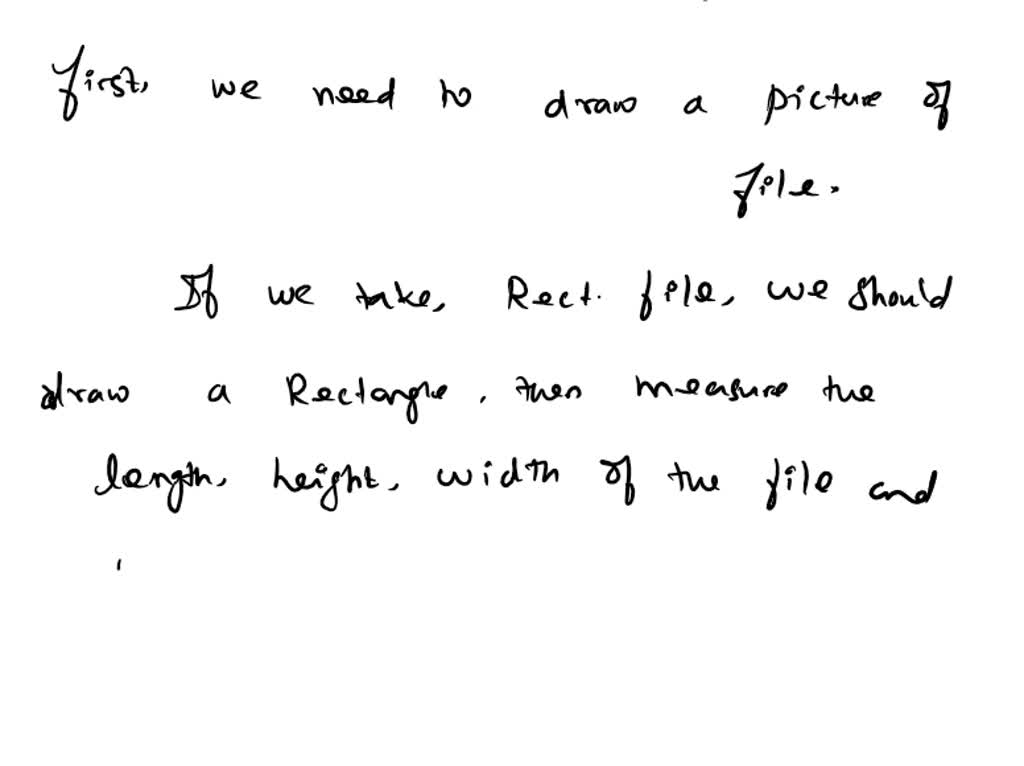 First, we need to draw a picture of
file.
If we take, Rect. file, we should
draw a Rectangle, then measure the
length, height, width of the file and